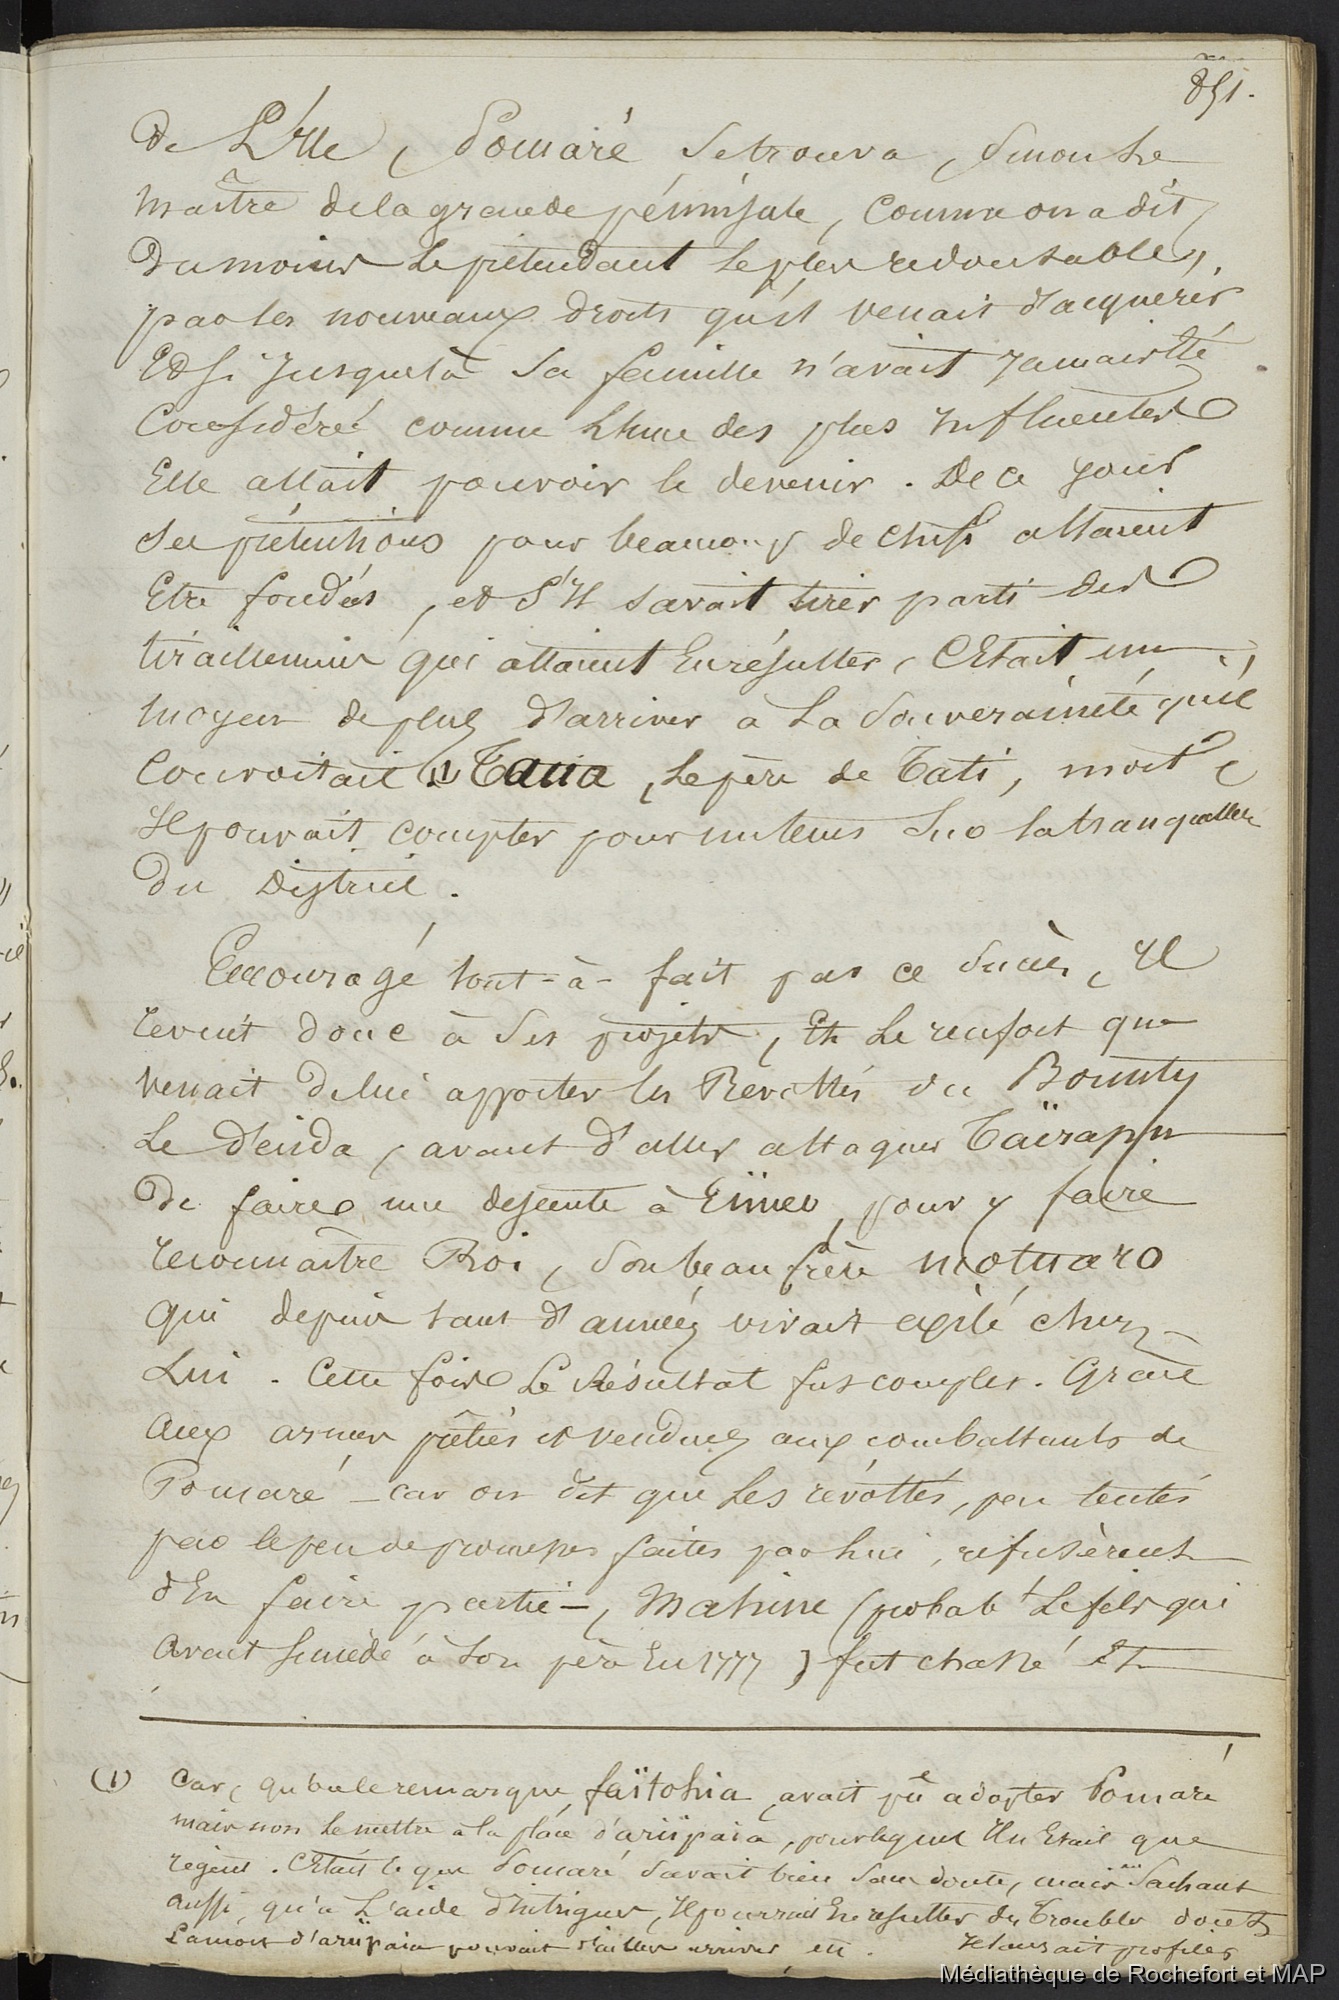 851.
De L'Ile, Pomaré Se trouva, Sinon le
Maître de la grande péninsule, Comme on a dit,
Du moins Le prétendant le plus redoutable,
par les nouveaux droits qu'il venait d'acquérir
Et Si Jusque là Sa famille n'avait Jamais Eté
Considéré comme L'une des plus Influentes
Elle allait pouvoir le devenir. De ce jour
Ses prétentions pour beaucoup de chefs allaient
Etre fondés, et S'Il Savait tirer parti des
tiraillemens qui allaient En résulter, C'Etait un
Moyen de plus d'arriver à La Souveraineté qu'il
Convoitait (1) Tauia, Le père de Tati, mort,
Il pouvait compter pour un tems Sur la tranquillité
Du District.
Encouragé tout-à-fait par ce Succès, Il
revint donc à Ses projets, Et Le renfort que
Venait De lui apporter les Révoltés du Bounty
Le Décida, avant d'aller attaquer Taïrapu
De faire une descente à Eïmeo, pour y faire
reconnaître Roi, Son beau frère Motuaro
qui depuis tant d'années vivait exilé chez
Lui. Cette fois Le Résultat fut complet. Grâce
aux armes prêtées et vendues aux combattants de
Pomaré - car on dit que Les révoltés, peu tentés
par le peu de promesses faites par lui, refusèrent
d'En faire partie -, Mahine (probabt Le fils qui
avait Succédé à Son père En 1777) fut chassé Et
(1) Car, qu'on le remarque, faïtohia, avait pû adopter Pomaré
mais non Le mettre à la place d'ariïpaia, pour lequel Il n'Etait que
régent. C'Etait ce que Pomaré Savait bien Sans doute, mais Sachant
aussi, qu'à L'aide d'Intrigues, Il pourrait En résulter des Troubles dont
La mort d'ariïpaia pouvait d'ailleurs arriver, Il aurait profiter
Médiathèque de Rochefort et MAP